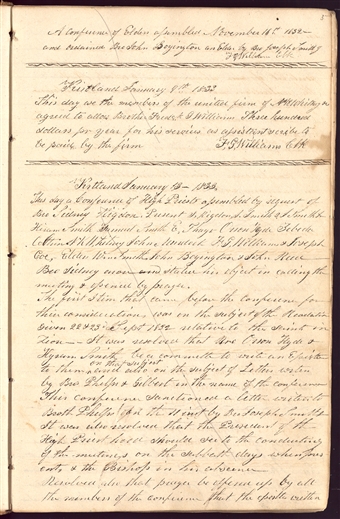 5
A Conference of Elders assembled November 16th 1832
and ordained Bro John Boyington an Elder by Bro Joseph Smith Jr
F G Williams Clk
Kirtland January 8th 1833
This day we the members of the united firm of N K Whitney
agreed to allow Brother F G Williams Three hundred
dollars per year for his services as assistant scribe to
be paid by the firm F. G Williams Clk
Kirtland January 13 1833.
This day a Conference of High Priests assembled by request of
Bro Sidney Rigdon Present S Rigdon J Smith
Hiram Smith Samuel Smith E. Thayer Orson Hyde Zebede
Coltrin N K Whitney John Murdock F G Williams & Joseph
Coe, Elder Wm Smith, John Boyington &
Bro Sidney arose stated his object in calling the
meeting & opened by prayer.
The first item that came before the conference for
their considerations was on the subject of the Revelation
Given 22 & 23 Sept 1832 relative to the saints in
Zion — It was resolved that Bro Orson Hyde &
Hyrum Smith be a committe to write an Epistle
on that subject
to them and also on the subject of Letters written
by Bro Phelps & Gilbert in the name of the conference
This conference sanctioned a letter written to
Broth Phelps of the 11 inst by Bro Joseph Smith Jr
It was also resolved that the President of the
High Priesthood should see to the conducting
of the meetings on the sabbath days when pres
ent, & the Bishop in his absence
Resolved also that prayer be offered up by all
the members of the conference that the epistle written